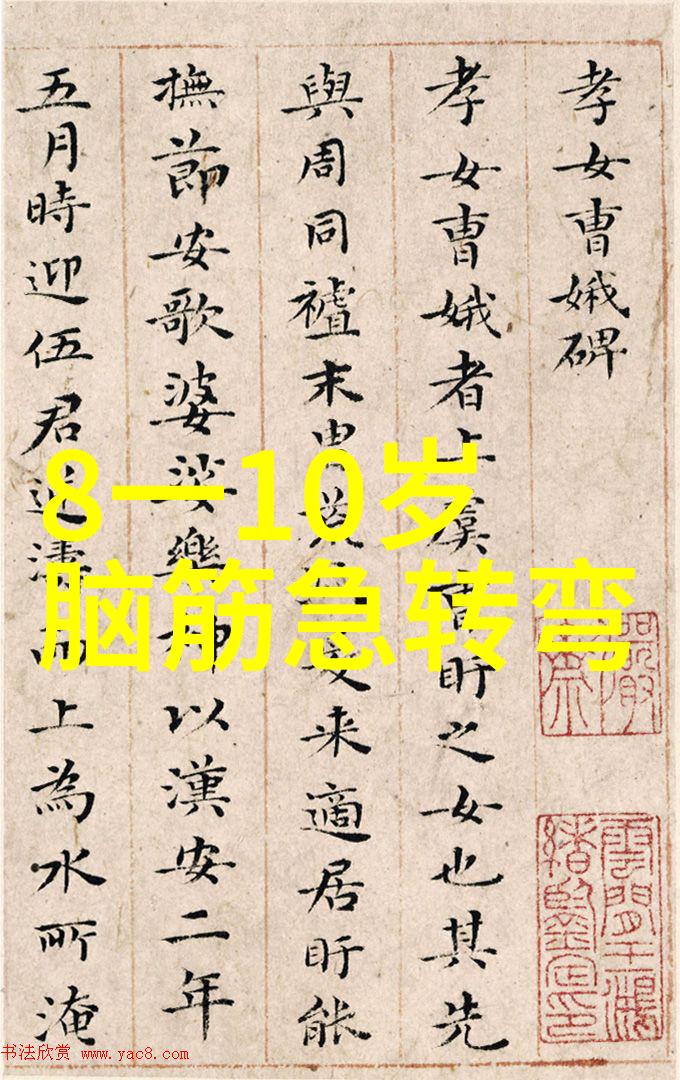 孝女曹娥碑
孝女曹娥者上虞曹盱之女也其先
與周同禮末胄荒爰来適居盱能
撫節安歌婆娑樂神以漢安二年
五月時迎伍君逆濤而上為水所淹
8一10岁
脑筋急转弯
雲間王鴻緒鑒定印
书法欣赏 www.yac8.com